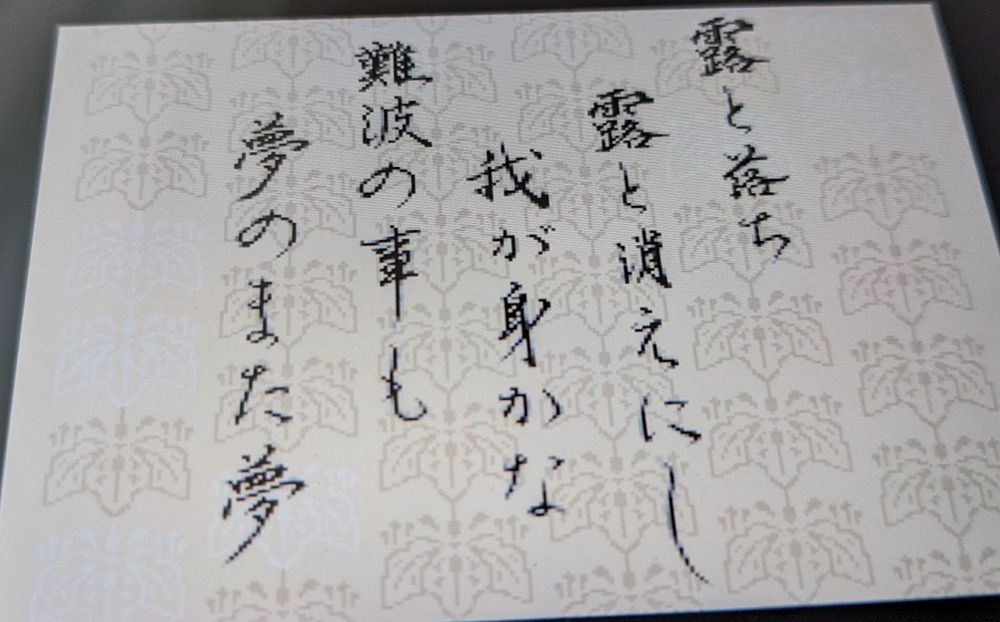 露と落ち
露と消えにし
我が身かな
難波の事も
夢のまた夢